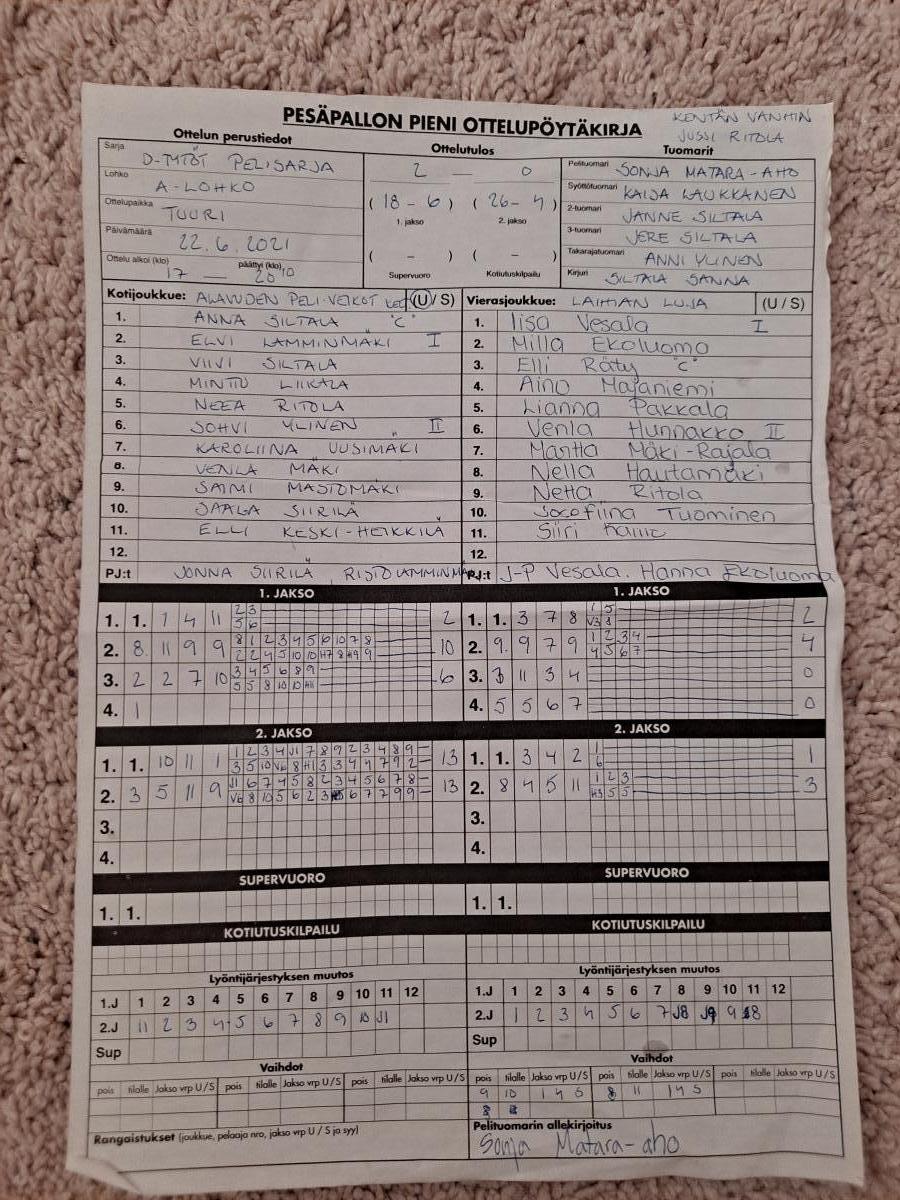 PESÄPALLON PIENI OTTELUPÖYTÄKIRJA
KENTÄN VANHIN
JUSSI RITOLA
Ottelun perustiedot
Ottelutulos
Tuomarit
Sarja D-TYTÖT PELISARJA
Lohko A-LOHKO
Ottelupaikka TUURI
Päivämäärä 22.6.2021
Ottelu alkoi (klo) 17 — päättyi (klo) 20 10
2 — 0
(18 - 6) (26 - 4)
1. jakso 2. jakso
( - ) ( - )
Supervuoro Kotiutuskilpailu
Pelituomari SONJA MATARA-AHO
Syöttötuomari KAIJA LAUKKANEN
2-tuomari JANNE SILTALA
3-tuomari JERE SILTALA
Takarajatuomari ANNI YLINEN
Kirjuri SILTALA SANNA
Kotijoukkue: ALAVUDEN PELI-VEIKOT (U / S)
1. ANNA SILTALA "C"
2. ELVI LAMMINMÄKI I
3. VIIVI SILTALA
4. MINTTU LIIKALA
5. NEEA RITOLA
6. SOHVI YLINEN II
7. KAROLIINA UUSIMÄKI
8. VENLA MÄKI
9. SAIMI MASTOMÄKI
10. SAAGA SIIRILÄ
11. ELLI KESKI-HEIKKILÄ
12.
PJ:t JONNA SIIRILÄ, RISTO LAMMINMÄKI
Vierasjoukkue: LAIHIAN LUJA (U / S)
1. Iisa Vesala I
2. Milla Ekoluoma
3. Elli Räty "C"
4. Aino Majaniemi
5. Lianna Pakkala
6. Venla Hunnakko II
7. Martta Mäki-Rajala
8. Nella Hautamäki
9. Netta Ritola
10. Tuominen
11. Siiri
12.
PJ:t J-P Vesala. Hanna Ekoluoma
1. JAKSO
1. 1. 7 4 11 2 3 2
5 6
2. 8 11 9 9 8 1 2 3 4 5 6 10 7 8 10
2 2 4 5 10 10 H7 8 H9 9
3. 2 2 7 10 3 4 5 6 8 9 6
5 5 8 10 10 H11
4. 1
1. JAKSO
1. 1. 3 7 8 1 5 2
V3 8
2. 9 9 7 9 1 2 3 4 4
4 5 6 7
3. 3 11 3 4 0
4. 5 5 6 7 0
2. JAKSO
1. 1. 10 11 1 1 2 3 4 J1 7 8 9 2 3 4 8 9 13
3 5 10 V6 8 H1 3 3 4 4 7 9 2
2. 3 5 11 9 J1 6 7 4 5 8 2 3 4 5 6 7 8 13
V6 8 10 5 6 2 3 6 7 7 9 9
3.
4.
2. JAKSO
1. 1. 3 4 2 1 1
6
2. 8 4 5 11 1 2 3 3
H3 5 5
3.
4.
SUPERVUORO
1. 1.
SUPERVUORO
1. 1.
KOTIUTUSKILPAILU
KOTIUTUSKILPAILU
Lyöntijärjestyksen muutos
1.J 1 2 3 4 5 6 7 8 9 10 11 12
2.J 11 2 3 4 5 6 7 8 9 10 J1
Sup
Lyöntijärjestyksen muutos
1.J 1 2 3 4 5 6 7 8 9 10 11 12
2.J 1 2 3 4 5 6 7 J8 J9 9 8
Sup
Vaihdot
pois tilalle Jakso vrp U / S pois tilalle Jakso vrp U / S pois tilalle Jakso vrp U / S
Vaihdot
pois tilalle Jakso vrp U / S pois tilalle Jakso vrp U / S pois tilalle Jakso vrp U / S
9 10 1 4 S 8 11 1 4 S
Rangaistukset (joukkue, pelaaja nro, jakso vrp U / S ja syy)
Pelituomarin allekirjoitus
Sonja Matara-aho